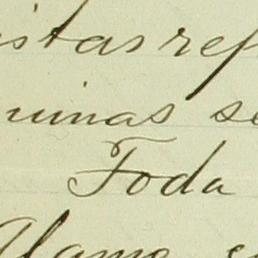 istas ref
uinas se
Toda
Alamo